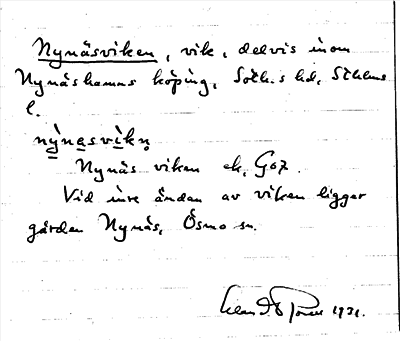 Nynäsviken, vik, delvis inom
Nynäshamns köping, Soth.s hd, Sthlms
l.
nỳnesvìkn̥
Nynäs viken ek, G67.
Vid inre ändan av viken ligger
gården Nynäs, Ösmo sn.
1931.